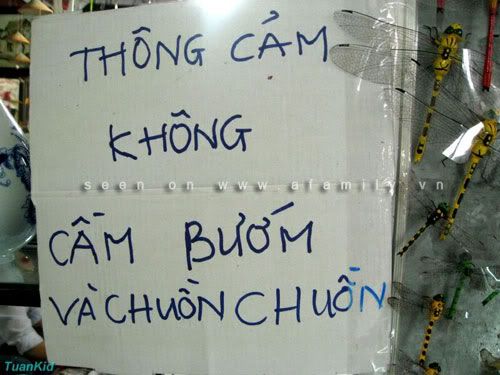 THÔNG CẢM
KHÔNG
seen on www.afamily.vn
CẦM BƯỚM
VÀ CHUỒN CHUỒN
TuanKid